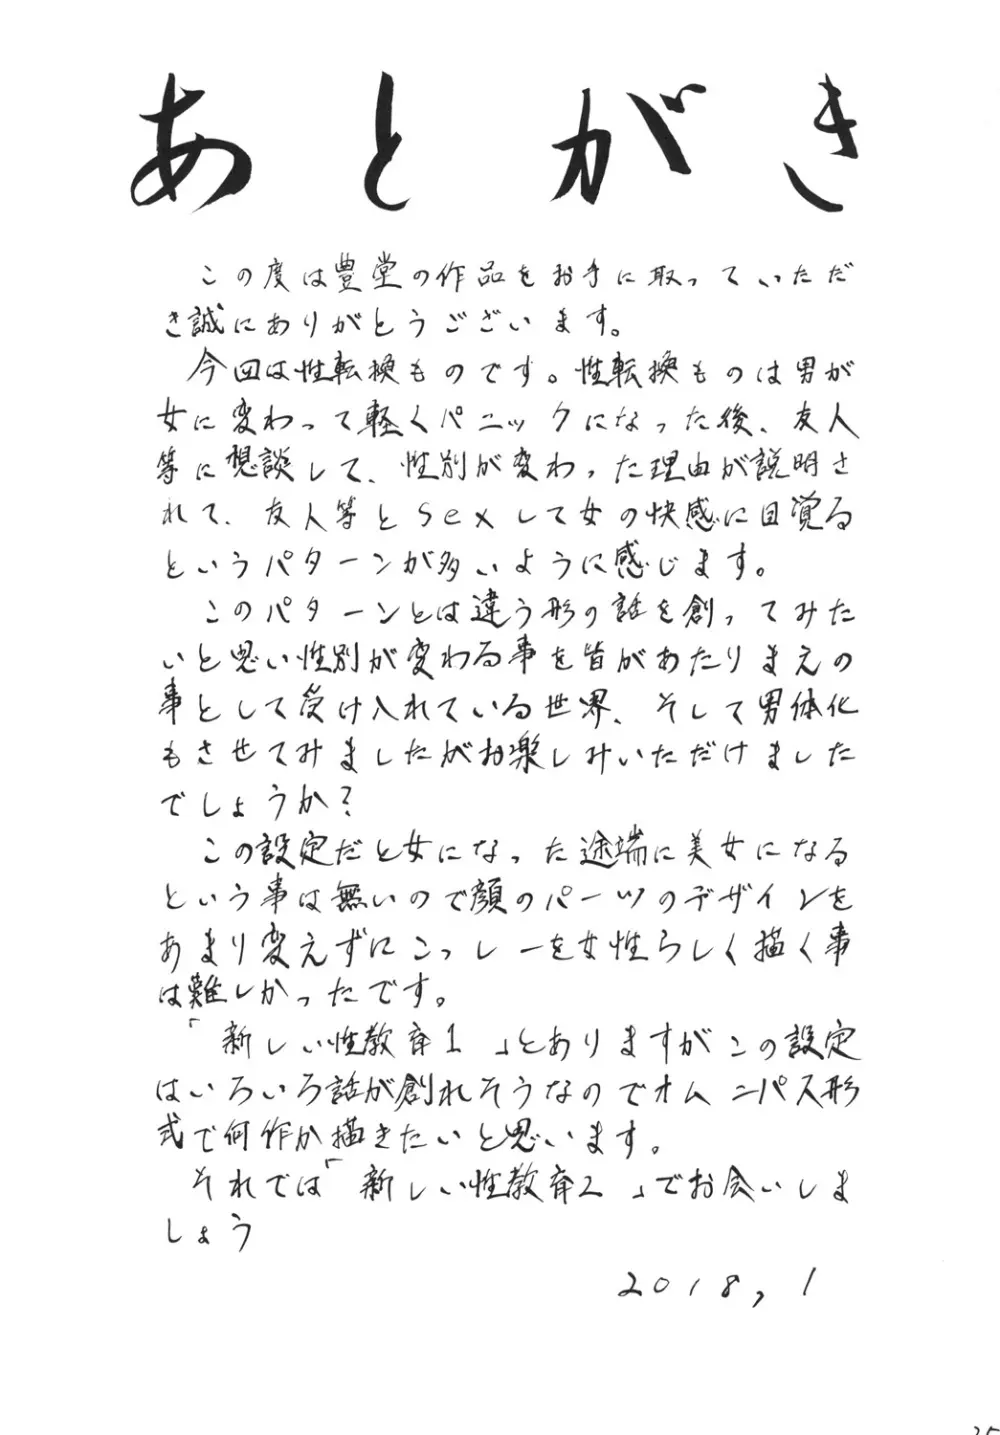 あとがき
この度は豊堂の作品をお手に取っていただ
き誠にありがとうございます。
今回は性転換ものです。性転換ものは男が
女に変わって軽くパニックになった後、友人
等に想談して、性別が変わった理由が説明さ
れて、友人等とsexして女の快感に目覚る
というパターンが多いように感じます。
このパターンとは違う形の話を創ってみた
いと思い性別が変わる事を皆があたりまえの
事として受け入れている世界、そして男体化
もさせてみましたがお楽しみいただけました
でしょうか?
この設定だと女になった途端に美女になる
という事は無いので顔のパーツのデザインを
あまり変えずにこっしーを女性らしく描く事
は難しかったです。
「新しい性教育1」とありますがこの設定
はいろいろ話が創れそうなのでオムニパス形
式で何作か描きたいと思います。
それでは「新しい性教育2」でお会いしま
しょう
2018,1